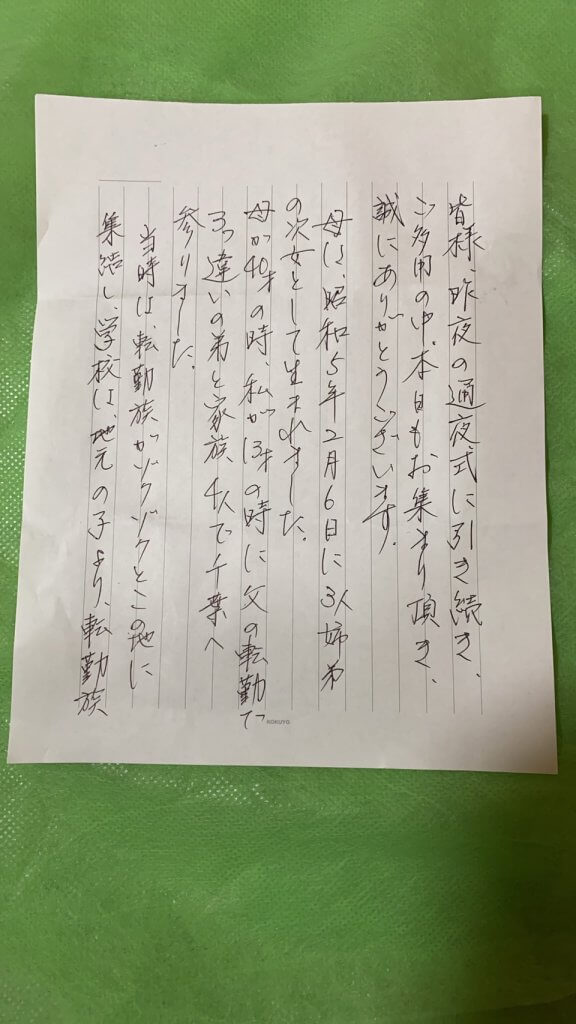 皆様、昨夜の通夜式に引き続き、
ご多用の中、本日もお集まり頂き、
誠にありがとうございます。
母は、昭和5年2月6日に3人姉弟
の次女として生まれました。
母が40才の時、私が13才の時に父の転勤で
3つ違いの弟と家族、4人で千葉へ
参りました。
当時は、転勤族がゾクゾクとこの地に
集結し、学校は、地元の子より、転勤族
KOKUYO